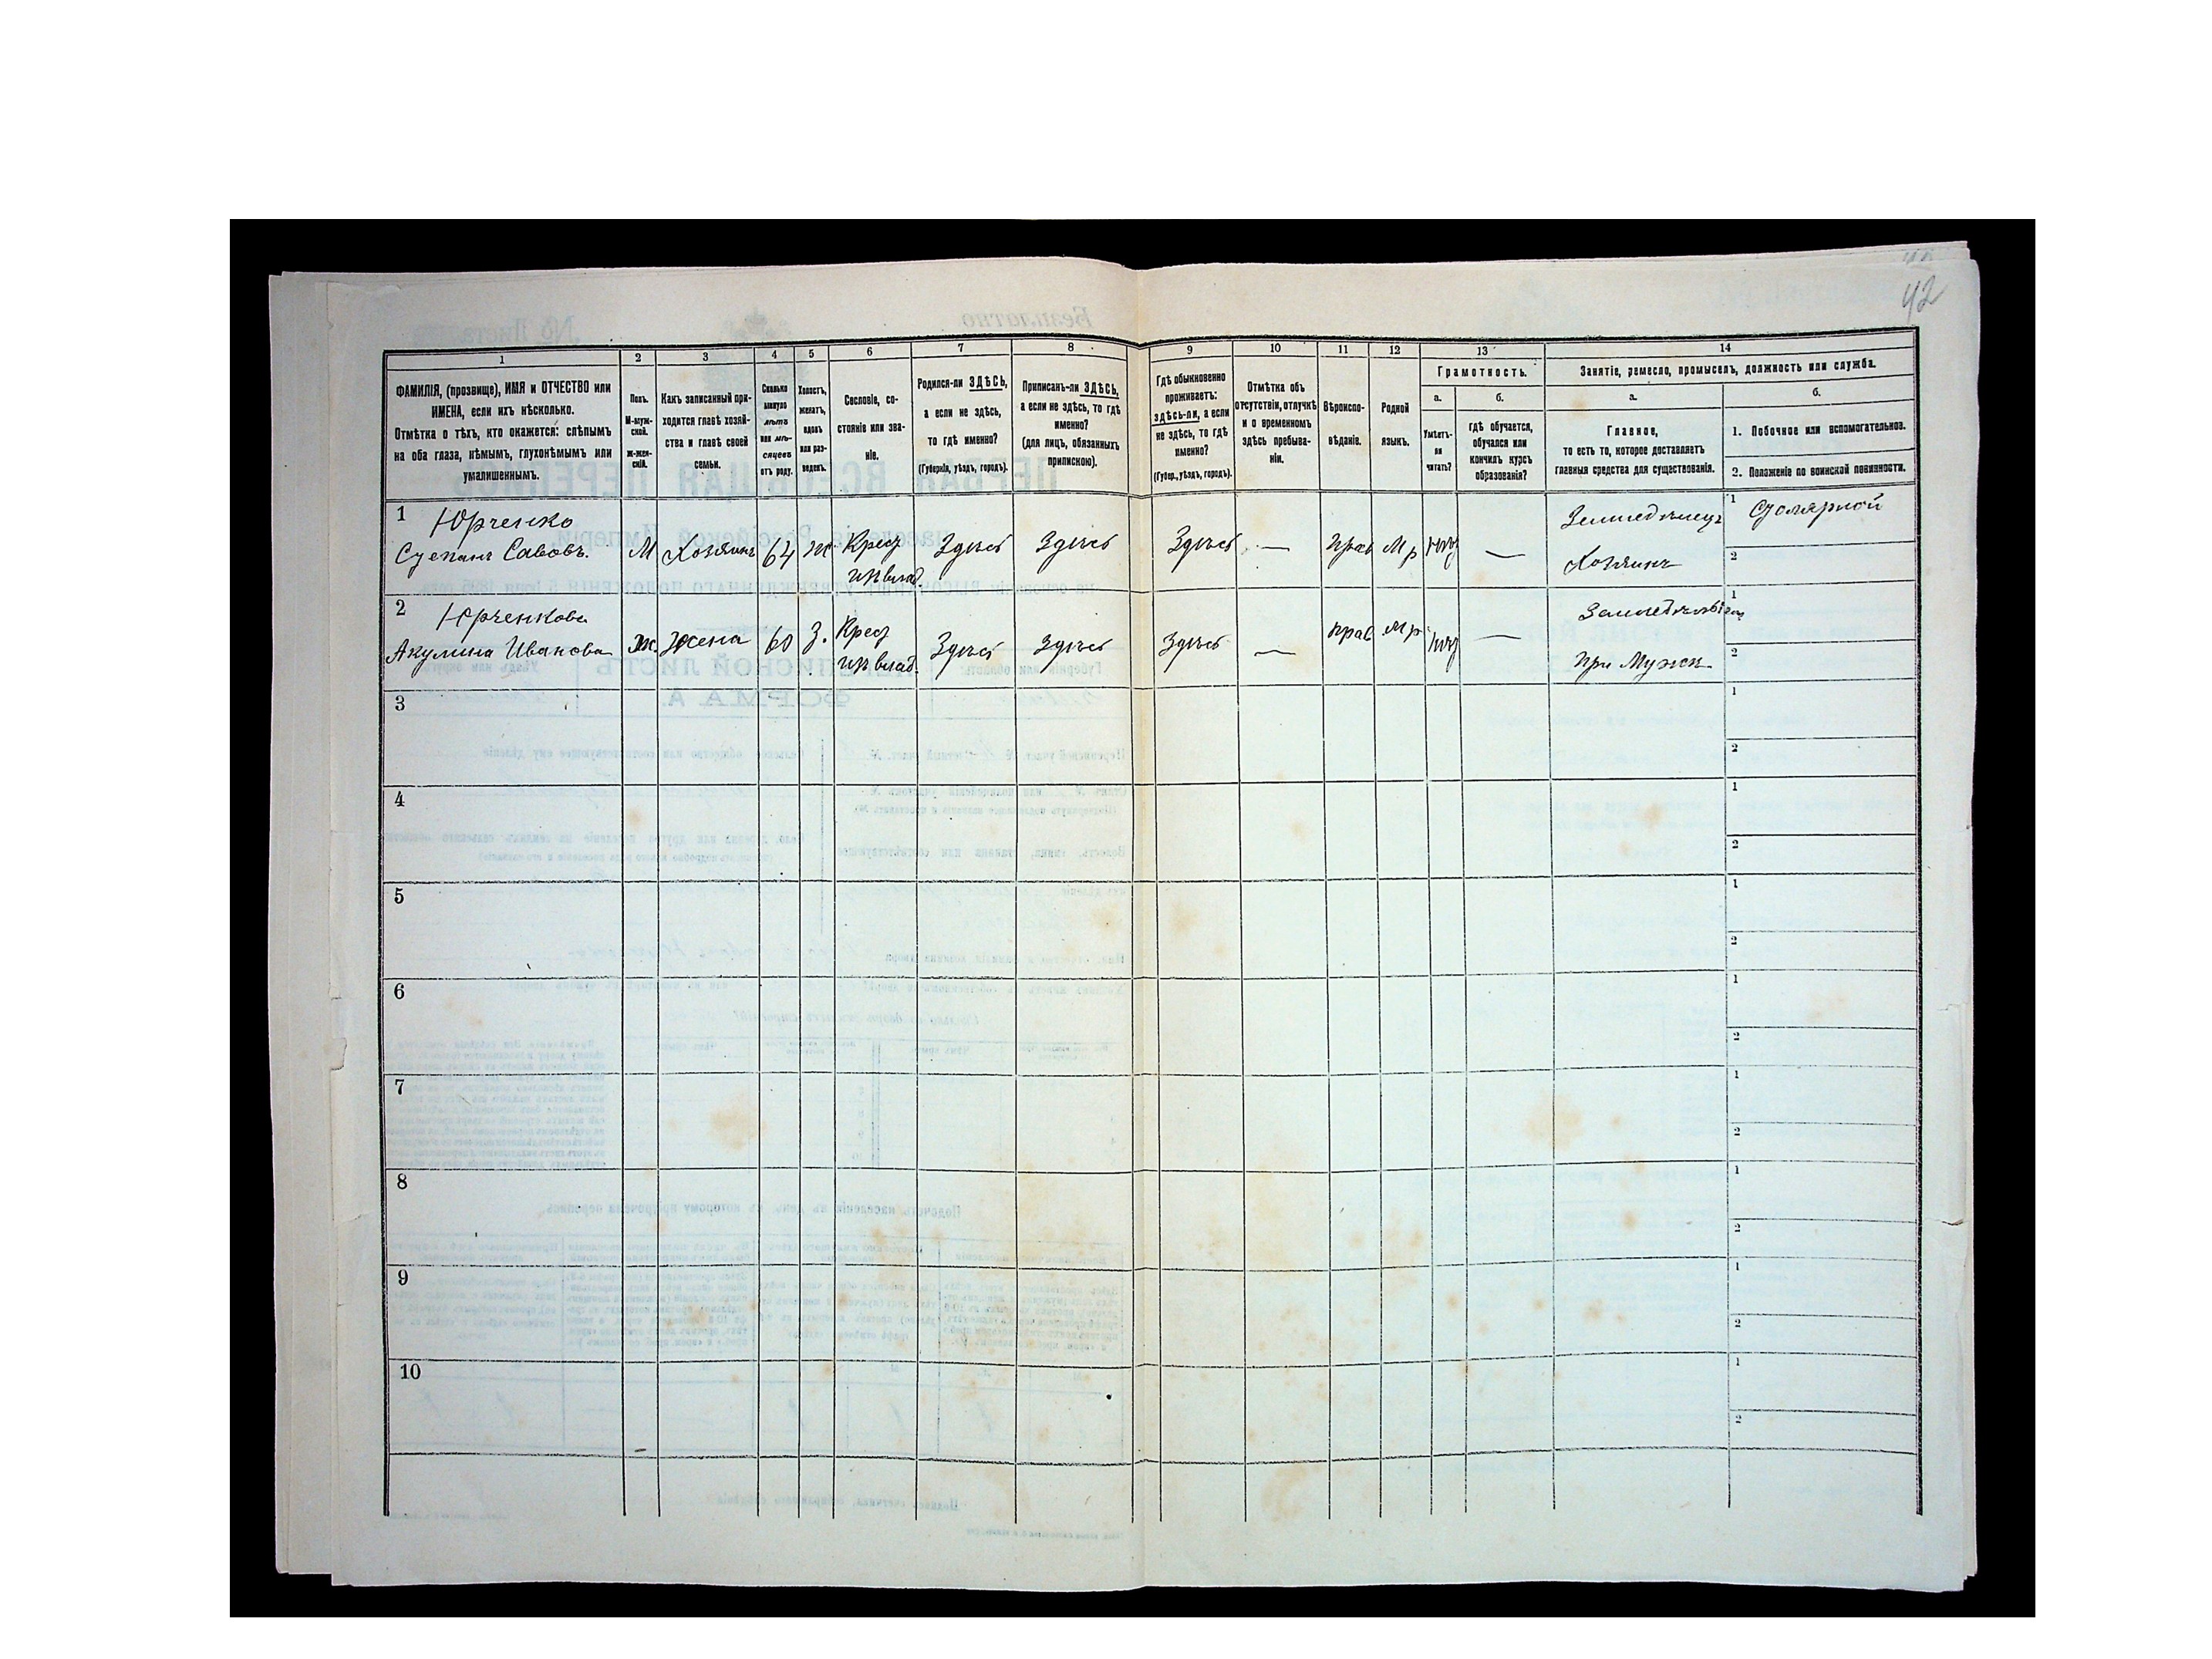 42
1 2 3 4 5 6 7 8 9 10 11 12 13 14
ФАМИЛІЯ, (прозвище), ИМЯ и ОТЧЕСТВО или
ИМЕНА, если ихъ нѣсколько.
Отмѣтка о тѣхъ, кто окажется: слѣпымъ
на оба глаза, нѣмымъ, глухонѣмымъ или
умалишеннымъ.
Полъ.
М-муж-
ской.
ж-жен-
скій.
Какъ записанный при-
ходится главѣ хозяй-
ства и главѣ своей
семьи.
Сколько
минуло
лѣтъ
или мѣ-
сяцевъ
отъ роду.
Холостъ,
женатъ,
вдовъ
или раз-
веденъ.
Сословіе, со-
стояніе или зва-
ніе.
Родился-ли ЗДѢСЬ,
а если не здѣсь,
то гдѣ именно?
(Губернія, уѣздъ, городъ).
Приписанъ-ли ЗДѢСЬ,
а если не здѣсь, то гдѣ
именно?
(для лицъ, обязанныхъ
припискою).
Гдѣ обыкновенно
проживаетъ:
здѣсь-ли, а если
не здѣсь, то гдѣ
именно?
(Губер., уѣздъ, городъ).
Отмѣтка объ
отсутствіи, отлучкѣ
и о временномъ
здѣсь пребыва-
ніи.
Вѣроиспо-
вѣданіе.
Родной
языкъ.
Грамотность.
а.
Умѣетъ-
ли
читать?
б.
гдѣ обучается,
обучался или
кончилъ курсъ
образованія?
Занятіе, ремесло, промыселъ, должность или служба.
а.
Главное,
то есть то, которое доставляетъ
главныя средства для существованія.
б.
1. Побочное или вспомогательное.
2. Положеніе по воинской повинности.
1 Юрченко
Степанъ Савовъ. М Хозяинъ 64 ж Крест
изъ влад. Здѣсь Здѣсь Здѣсь — прав М р нѣт — Земледѣлецъ
Хозяинъ
1 Столярной
2
2 Юрченкова
Акулина Иванова ж. Жена 60 З. Крест
изъ влад. Здѣсь Здѣсь Здѣсь — прав М р нѣт —
при Мужѣ
1
2
3 1
2
4 1
2
5 1
2
6 1
2
7 1
2
8 1
2
9 1
2
10 1
2